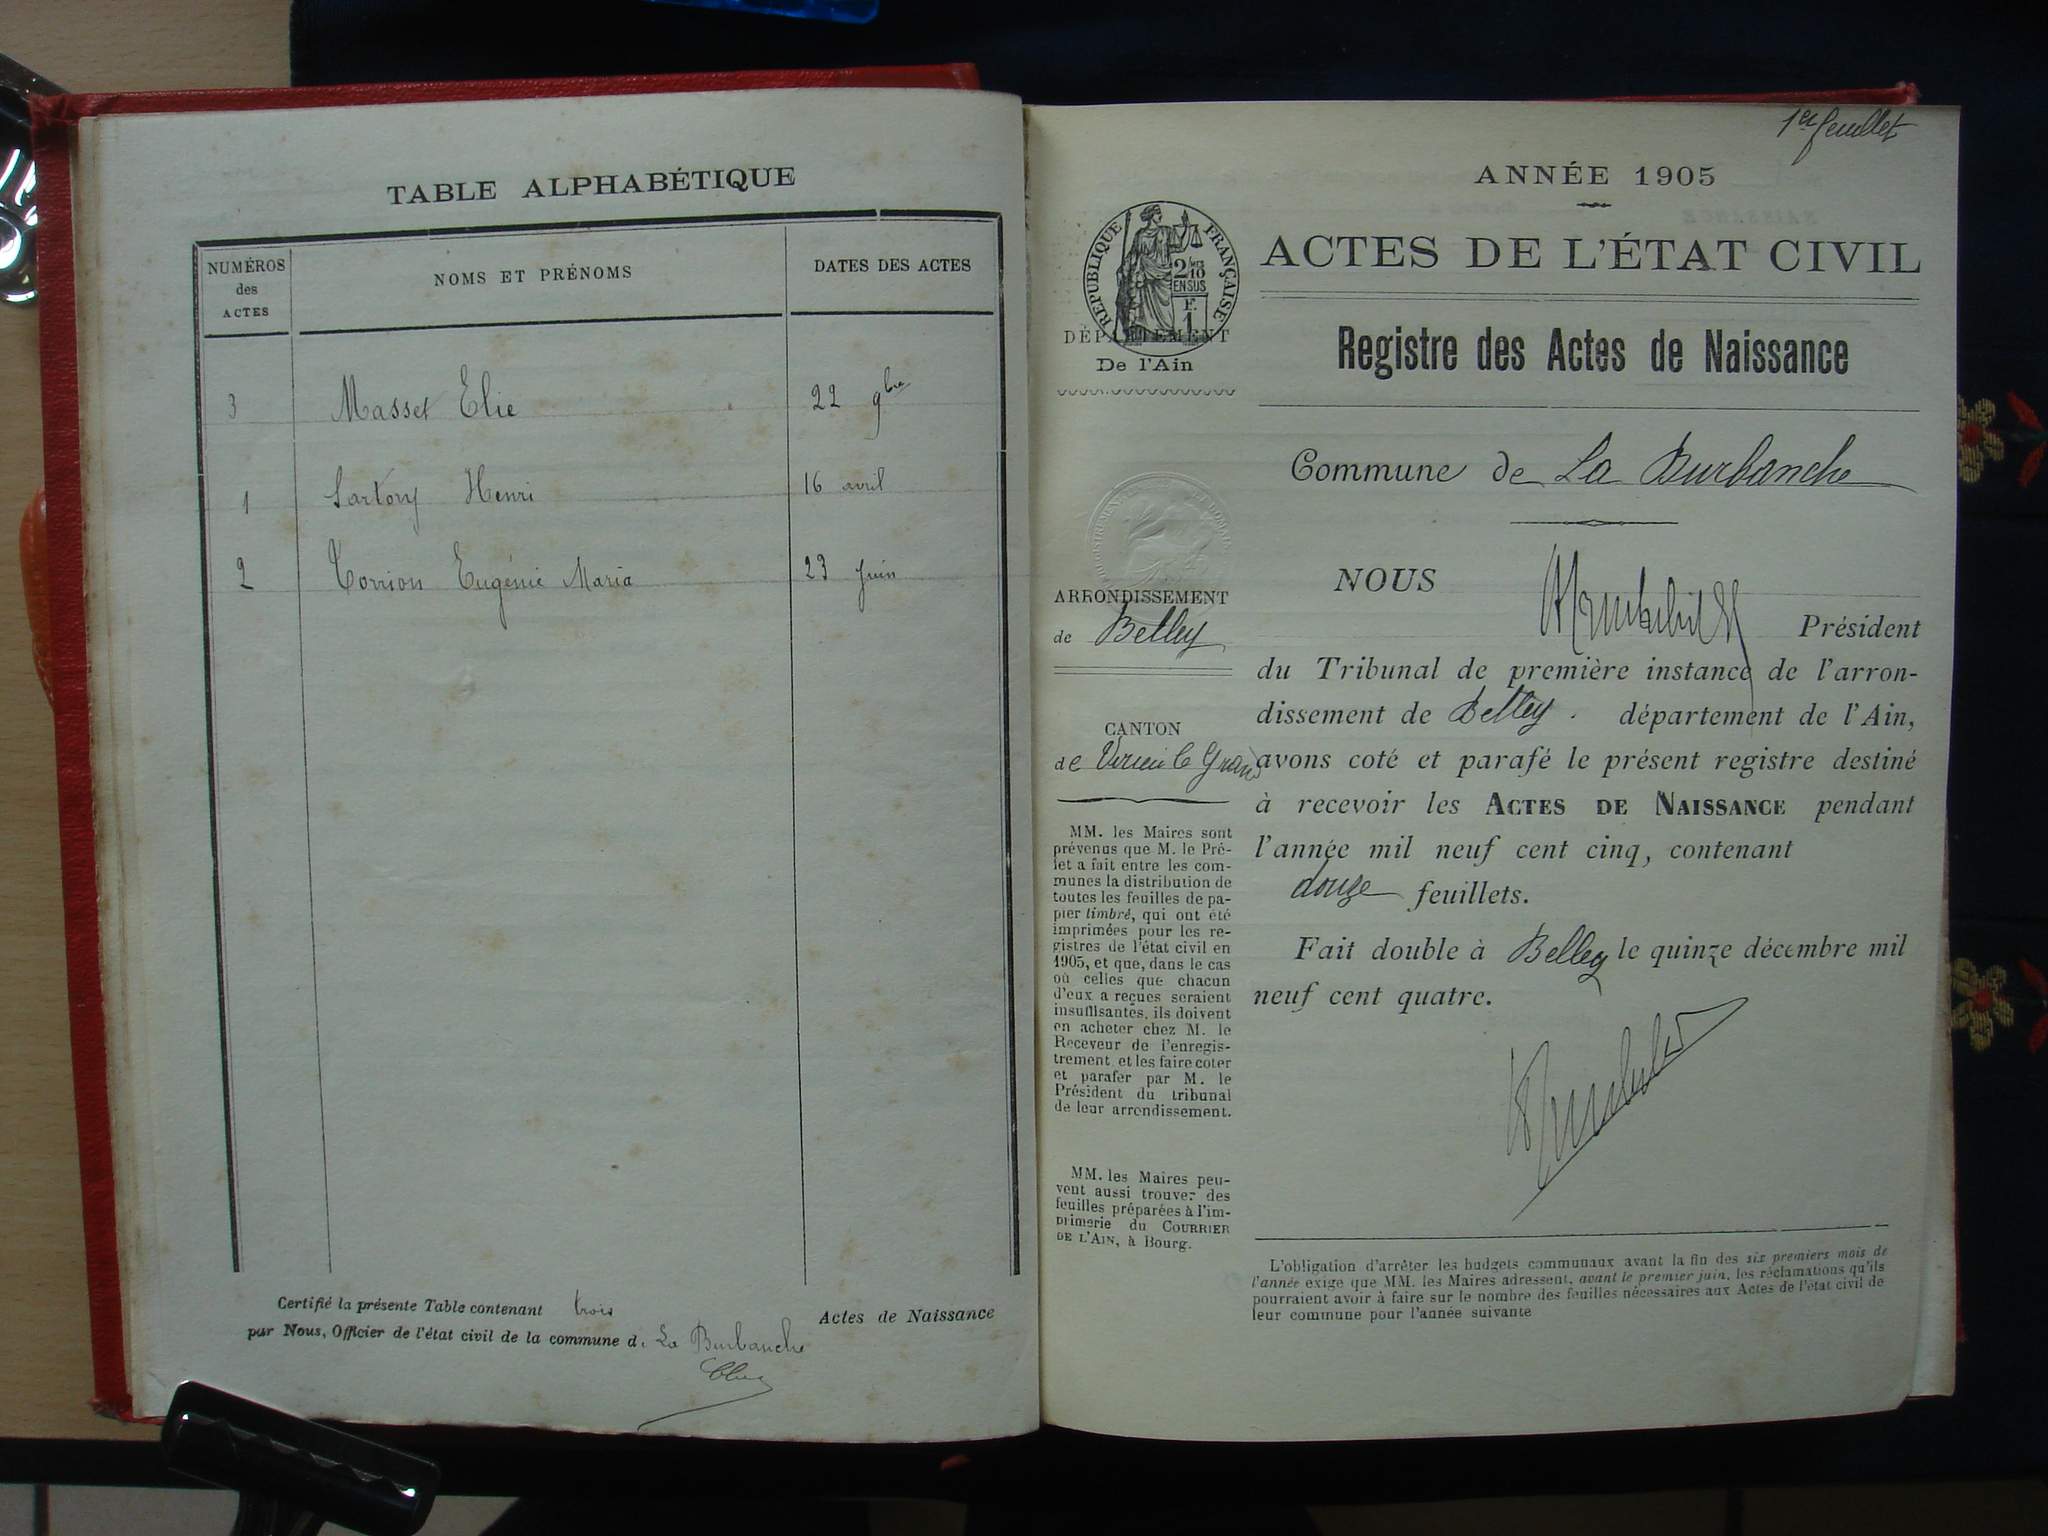 TABLE ALPHABÉTIQUE
NUMÉROS
des
ACTES
NOMS ET PRÉNOMS
DATES DES ACTES
3 Masset Elie 22 9bre
1 Sartory Henri 16 avril
2 Torrion Eugénie Maria 23 juin
Certifié la présente Table contenant trois Actes de Naissance
par Nous, Officier de l'état civil de la commune d. La Burbanche
1er feuillet
ANNÉE 1905
RÉPUBLIQUE FRANÇAISE
2/10
EN SUS
F.
1
DÉPARTEMENT
De l'Ain
ARRONDISSEMENT
de Belley
CANTON
de Virieu le Grand
MM. les Maires sont
prévenus que M. le Pré-
fet a fait entre les com-
munes la distribution de
toutes les feuilles de pa-
pier timbré, qui ont été
imprimées pour les re-
gistres de l'état civil en
1905, et que, dans le cas
où celles que chacun
d'eux a reçues seraient
insuffisantes, ils doivent
en acheter chez M. le
Receveur de l'enregis-
trement, et les faire coter
et parafer par M. le
Président du tribunal
de leur arrondissement.
MM. les Maires peu-
vent aussi trouver des
feuilles préparées à l'im-
primerie du COURRIER
DE L'AIN, à Bourg.
ACTES DE L'ÉTAT CIVIL
Registre des Actes de Naissance
Commune de La Burbanche
NOUS
Président
du Tribunal de première instance de l'arron-
dissement de Belley. département de l'Ain,
avons coté et parafé le présent registre destiné
à recevoir les ACTES DE NAISSANCE pendant
l'année mil neuf cent cinq, contenant
douze feuillets.
Fait double à Belley le quinze décembre mil
neuf cent quatre.
L'obligation d'arrêter les budgets communaux avant la fin des six premiers mois de
l'année exige que MM. les Maires adressent, avant le premier juin, les réclamations qu'ils
pourraient avoir à faire sur le nombre des feuilles nécessaires aux Actes de l'état civil de
leur commune pour l'année suivante